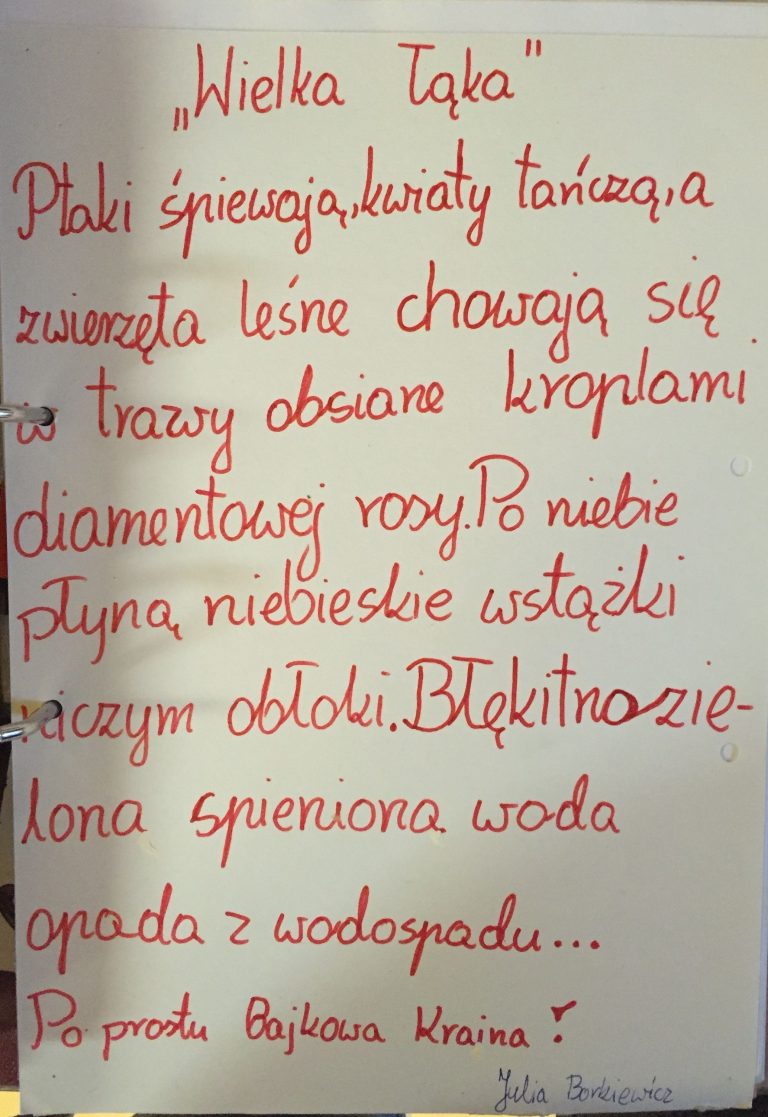 „Wielka łąka"
Ptaki śpiewają, kwiaty tańczą, a
zwierzęta leśne chowają się
w trawy obsiane kroplami
diamentowej rosy. Po niebie
płyną niebieskie wstążki
niczym obłoki. Błękitno zie-
lona spieniona woda
opada z wodospadu...
Po prostu Bajkowa Kraina!
Julia Borkiewicz